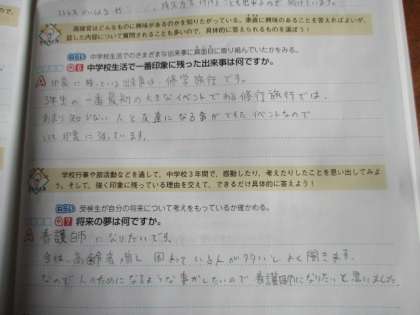 面接官はどんなものに興味があるのかを知りたがっている。素直に興味のあることを答えればよいが、
話した内容について質問されることも多いので、具体的に答えられるものを選ぼう!
ねらい 中学校生活でのさまざまな出来事に真面目に取り組んでいたかをみる。
Q6 中学校生活で一番印象に残った出来事は何ですか。
A 印象に残っている出来事は、修学旅行です。
3年生の一番最初の大きなイベントである修行旅行では、
あまり知らない人と友達になる事ができたイベントなので
印象に残っています。
学校行事や部活動などを通して、中学校3年間で、感動したり、考えたりしたことを思い出してみよ
う。そして、強く印象に残っている理由を交えて、できるだけ具体的に答えよう!
ねらい 受検生が自分の将来について考えをもっているか確かめる。
Q7 将来の夢は何ですか。
A 看護師になりたいです。
今は、高齢者増し 困っている人が多いとよく聞きます。
なので人のためになるような事がしたいので看護師になりたいと思いました。